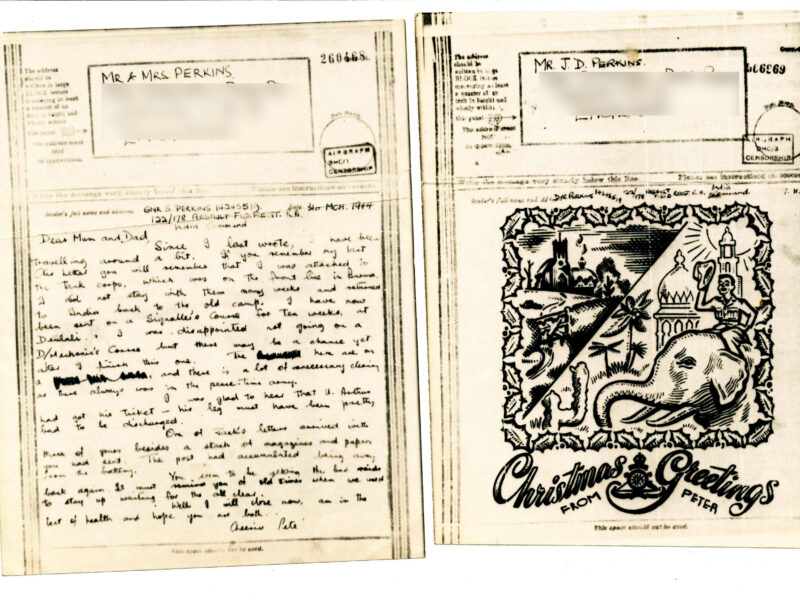 The address
should be
written in large
BLOCK letters
measuring at least
a quarter of an
inch in height and
wholly within
this panel
The address must
NOT
be typewritten.
MR & MRS. PERKINS
260468
AIRGRAPH
CENSORSHIP
Write the message very clearly below this line.
Please see instructions on reverse.
Sender's full name and address
GNR S PERKINS
Date 31st MCH. 1944
India Command
Dear Mum and Dad,
Since I last wrote, I have been
travelling around a bit. If you remember my last
letter you will remember that I was attached to
the Tank corps, which was on the front line in Burma.
I did not stay with them many weeks and returned
to India back to the old camp. I have now
been sent on a Signaller's Course for Ten weeks, at
Deolali. I was disappointed not going on a
D/Mechanic's Course but there may be a chance yet
after I finish this one. The here are on
a and there is a lot of unnecessary cleaning
as there always was in the peace-time army.
I was glad to hear that U. Arthur
had got his Ticket – his leg must have been pretty
bad to be discharged.
One of Jack's letters arrived with
three of yours besides a stack of magazines and papers
you had sent. The post had accumulated being away
from the battery.
You seem to be getting the bad raids
back again. It must remind you of old times when we used
to stay up waiting for the all clear.
Well I will close now, am in the
best of health and hope you are both.
Cheerio Pete
This space should not be used.
The address
should be
written in large
BLOCK letters
measuring at least
a quarter of an
inch in height and
wholly within
this panel
The address must
NOT
MR. J. D. PERKINS.
AIRGRAPH
CENSORSHIP
Write the message very clearly below this line.
Please see instructions on reverse.
Sender's full name and
Perkins
India
Command
Christmas Greetings
FROM PETER
This space should not be used.